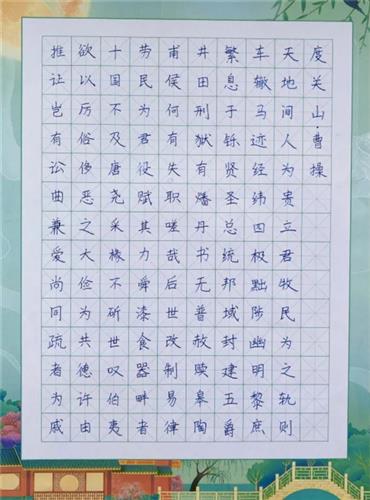 度关山·曹操
天地间人为贵立君牧民为之轨则
车辙马迹经纬四极黜陟幽明黎庶
繁息于铄贤圣总统邦域封建五爵
井田刑狱有燔丹书无普赦赎皋陶
甫侯何有失职嗟哉后世改制易律
劳民为君役赋其力舜漆食器畔者
十国不及唐尧采椽不斫世叹伯夷
欲以厉俗侈恶之大俭为共德许由
推让岂有讼曲兼爱尚同疏者为戚